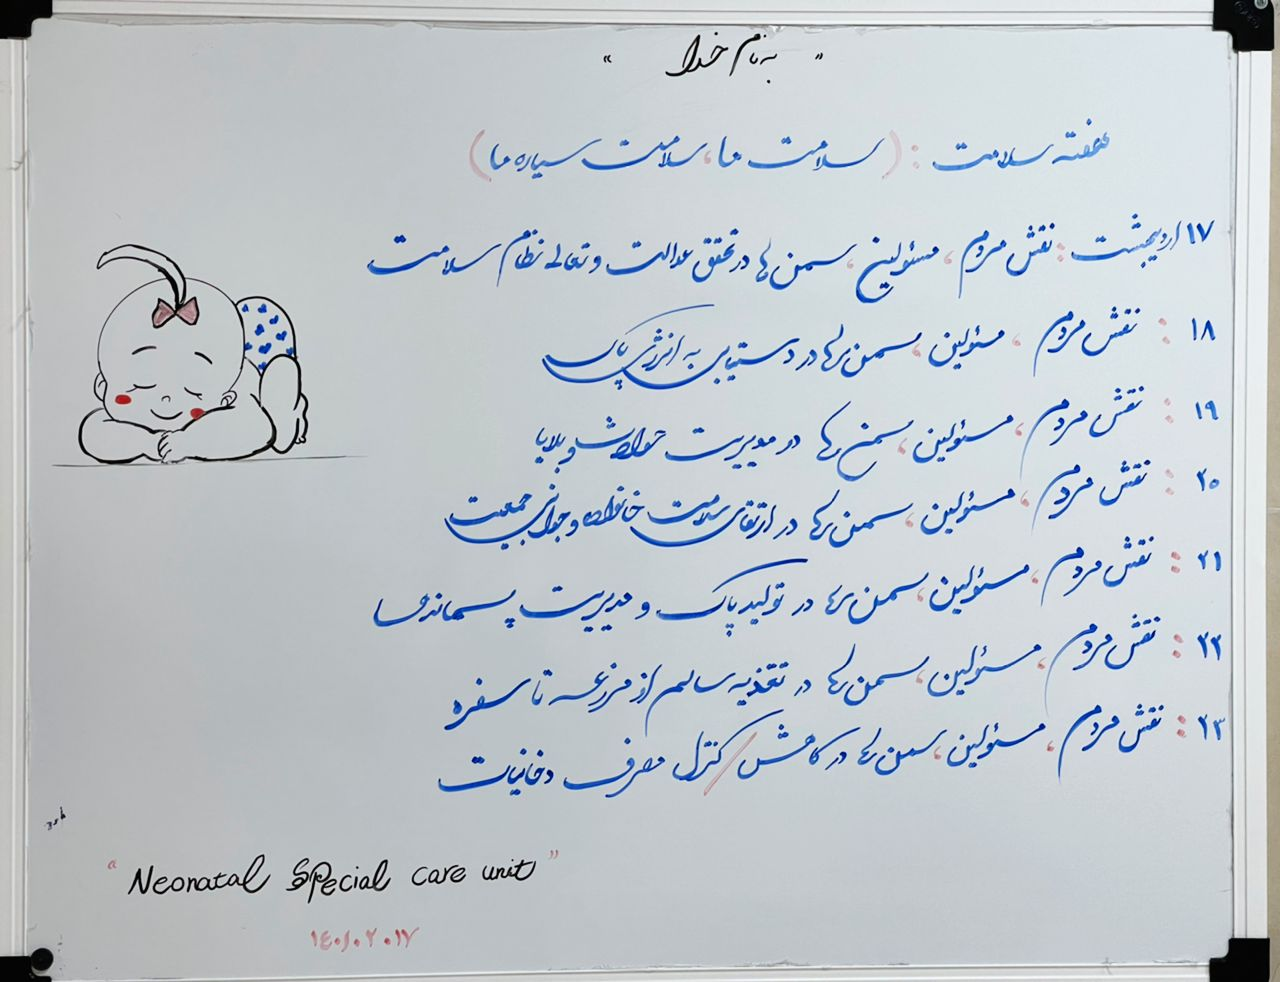 " به نام خدا "
هفته سلامت : (سلامت ما، سلامت سیاره ما)
۱۷ اردیبهشت : نقش مردم، مسئولین، سمن ها در تحقق عدالت و تعالی نظام سلامت
۱۸ : نقش مردم، مسئولین، سمن ها در دستیابی به انرژی پاک
۱۹ : نقش مردم، مسئولین، سمن ها در مدیریت حوادث و بلایا
۲۰ : نقش مردم، مسئولین، سمن ها در ارتقای سلامت خانواده و جوانی جمعیت
۲۱ : نقش مردم، مسئولین، سمن ها در تولید پاک و مدیریت پسماندها
۲۲ : نقش مردم، مسئولین، سمن ها در تغذیه سالم از مزرعه تا سفره
۲۳ : نقش مردم، مسئولین، سمن ها در کاهش/کنترل مصرف دخانیات
"Neonatal Special care unit"
۱۴۰۱.۰۲.۱۷